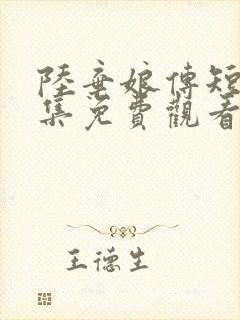 陸棄娘傳短
集免費觀看
王德生